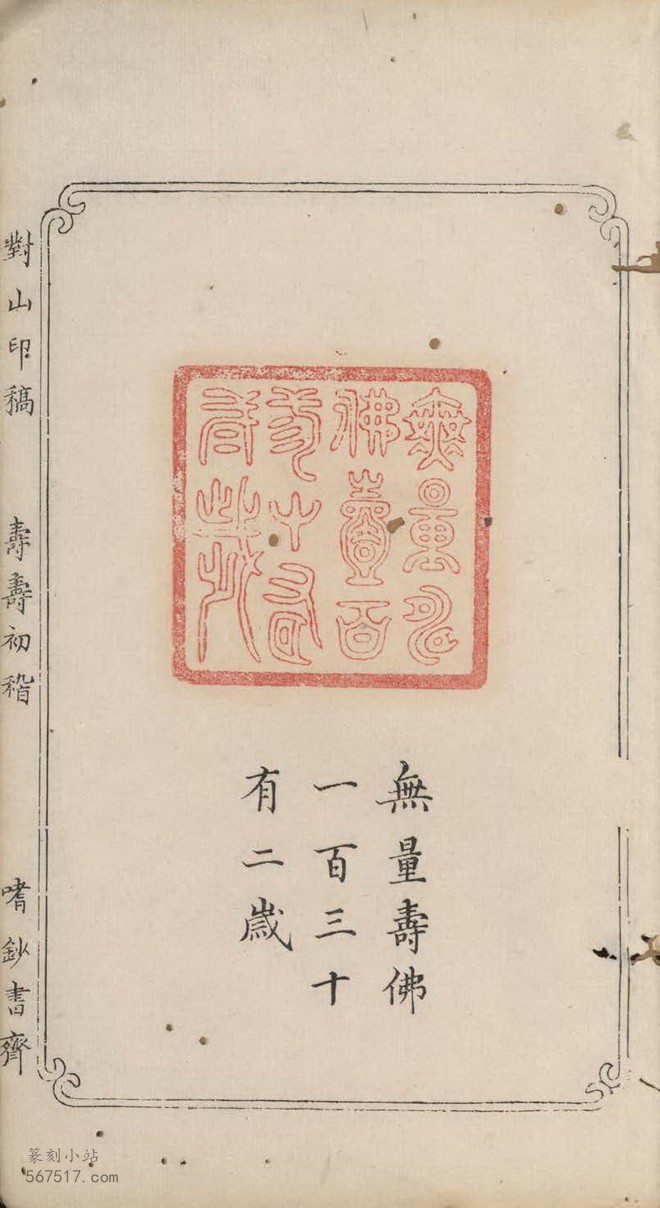 無量壽
佛壹百
無量壽佛
一百三十
有二歲
對山印稿 壽壽初稽 嗜鈔書齊
篆刻小站
567517.com